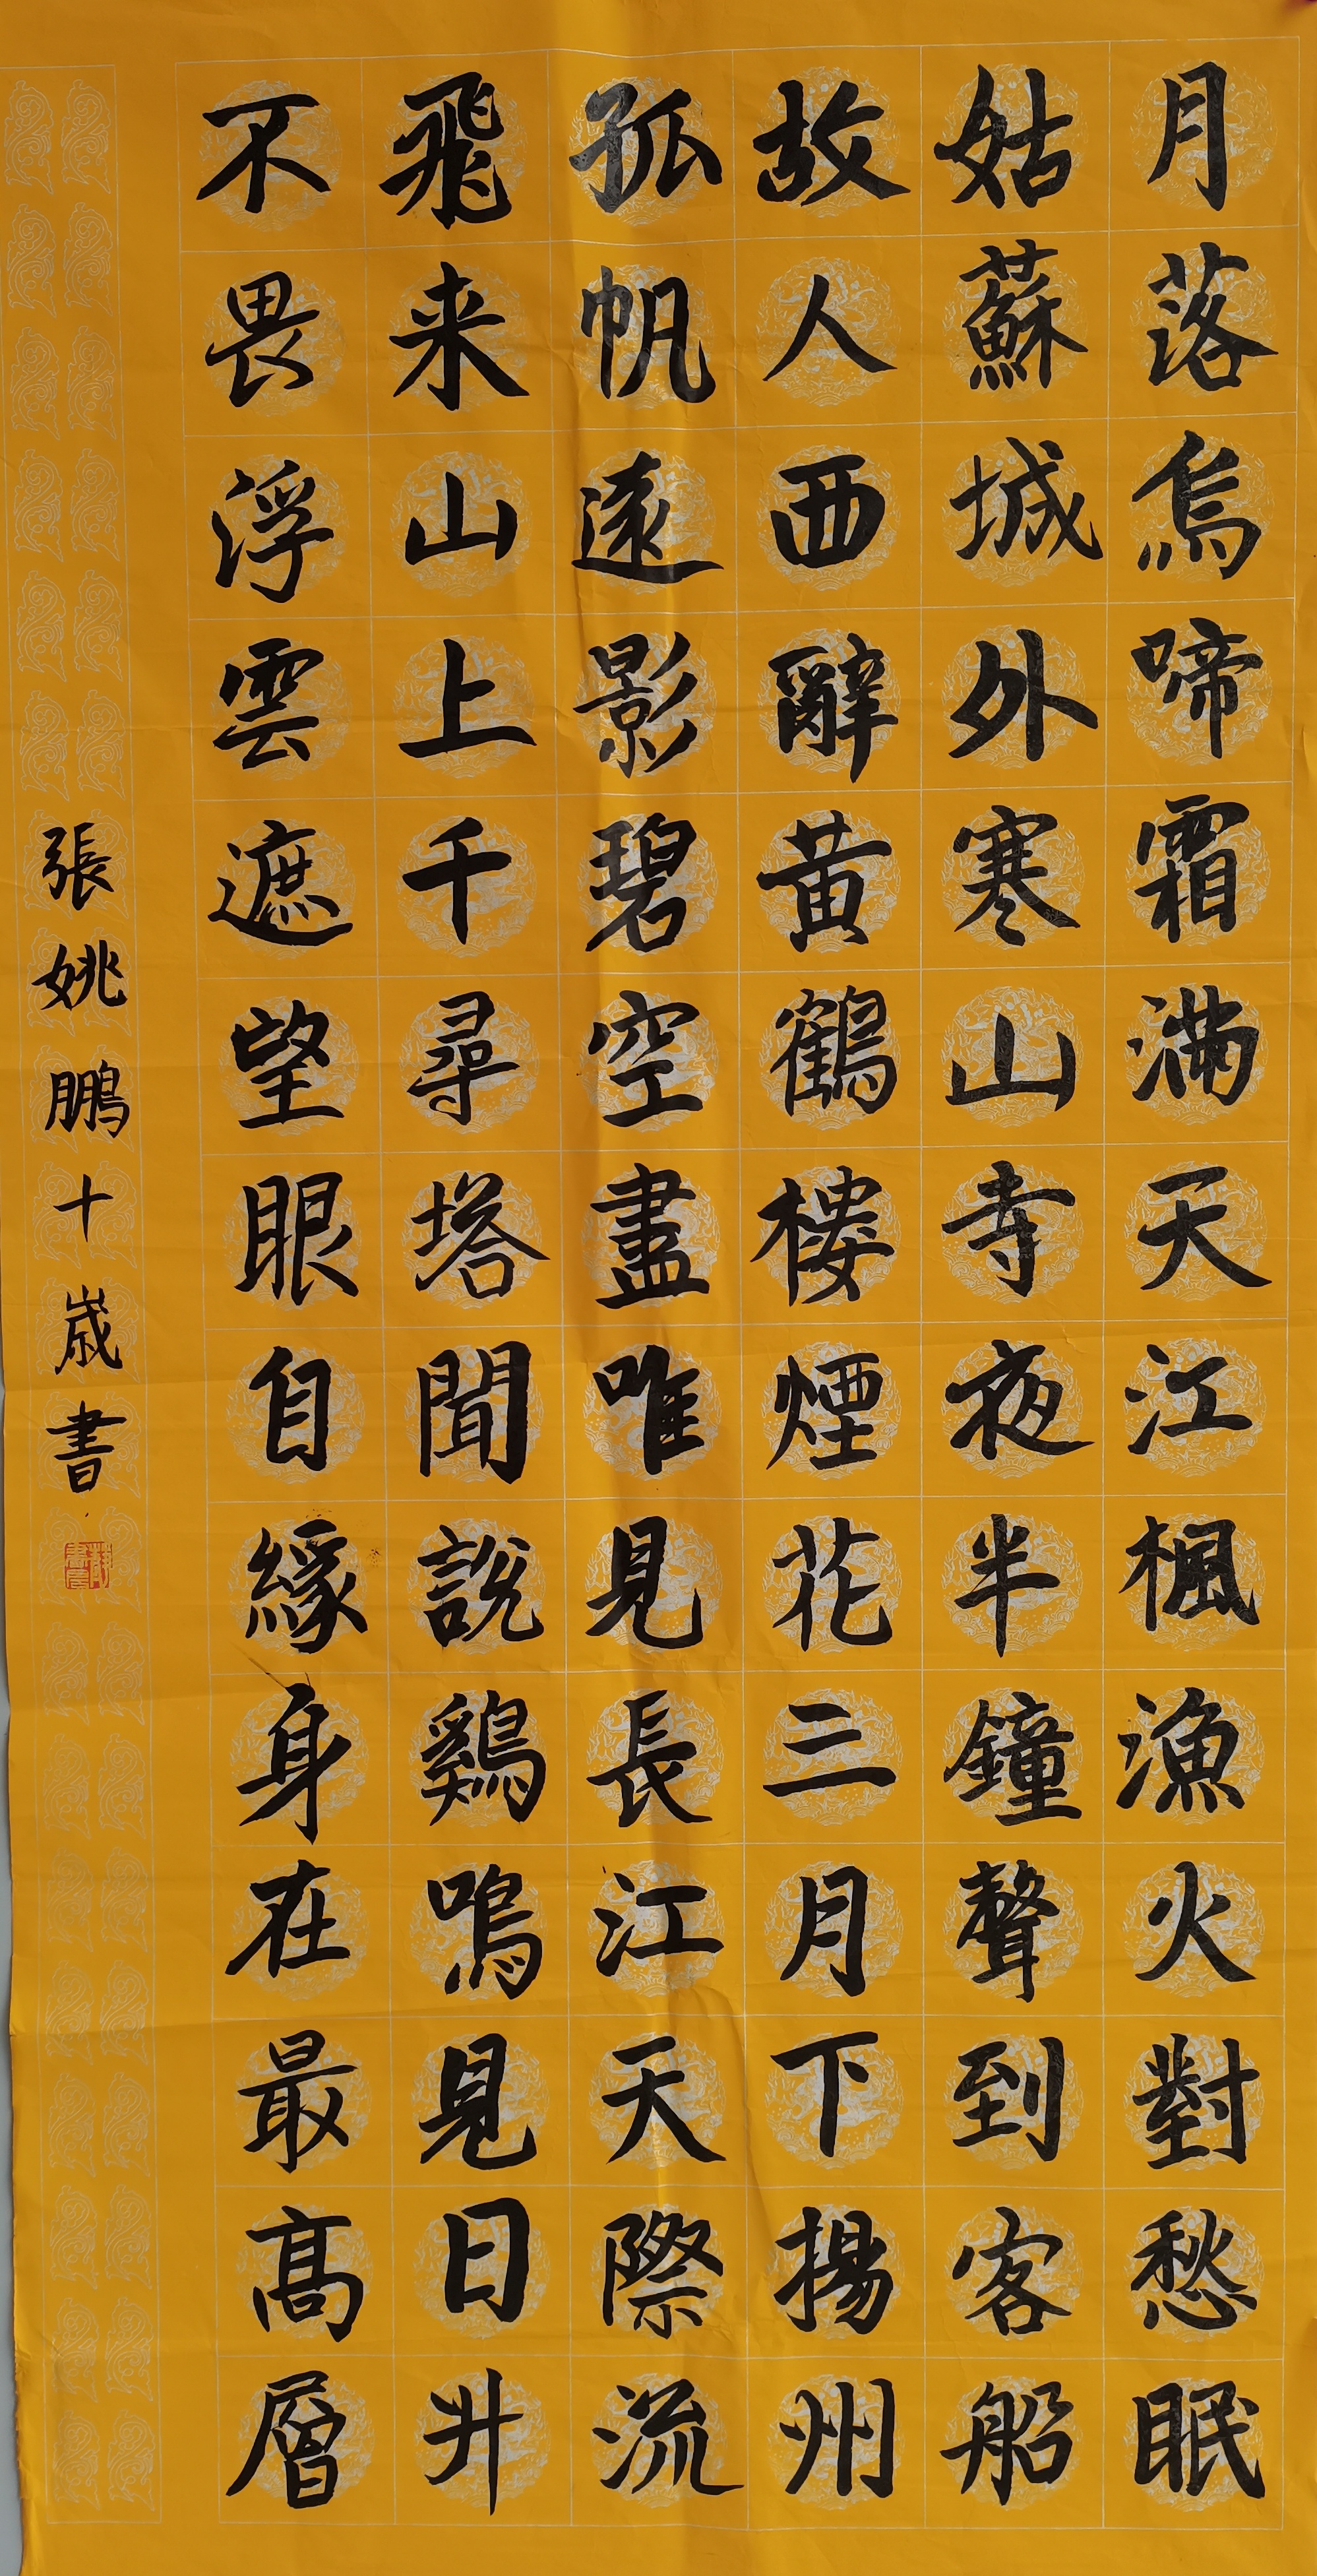 月落烏啼霜滿天江楓漁火對愁眠
姑蘇城外寒山寺夜半鐘聲到客船
故人西辭黃鶴樓煙花三月下揚州
孤帆遠影碧空盡唯見長江天際流
飛来山上千尋塔聞說鷄鳴見日升
不畏浮雲遮望眼自緣身在最高層
張姚鵬十歲書